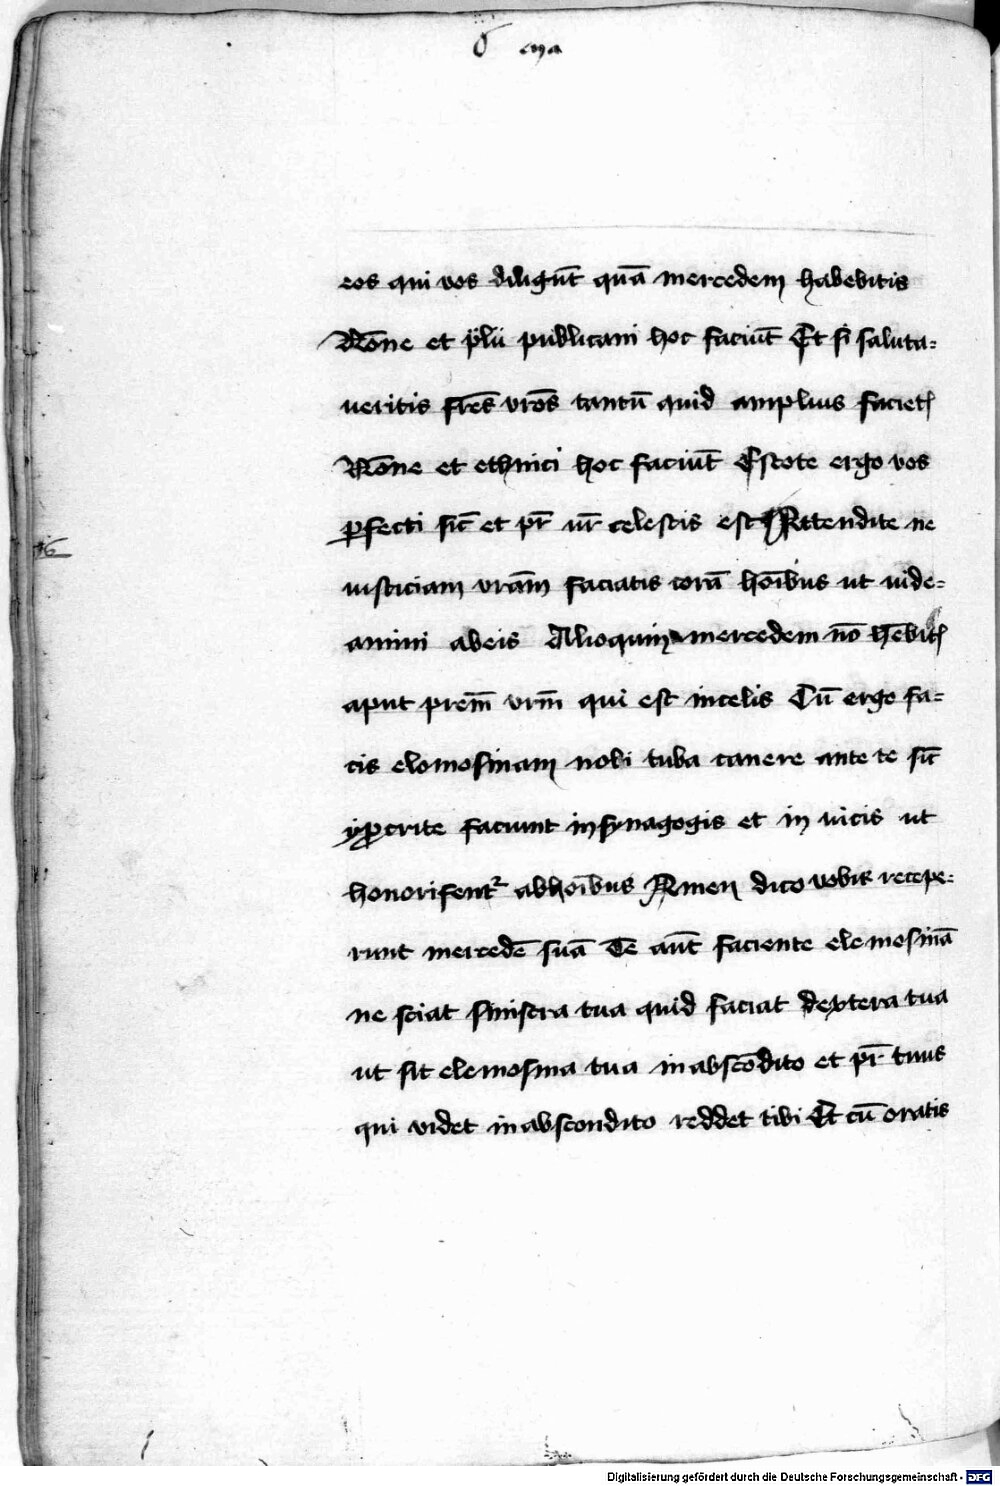 ma
eos qui vos diligūt quā mercedem habebitis
Nōne et p̄lii publicani hoc faciūt Et si saluta=
ueritis fr̄es vr̄os tantū quid amplius facietꝭ
Nōne et ethnici hoc faciūt Estote ergo vos
ꝑfecti sic̄ et pr̄ ur̄ celestis est Attendite ne
iusticiam vrām faciatis corā hōibus ut uide=
amini abeis Alioquin mercedem nō hēbitꝭ
aput prēm vrm̄ qui est incelis Cū ergo fa=
cis elemosinam noli tuba canere ante te sic̄
ypocrite faciunt insynagogis et in uicis ut
honorifent᷑ abhoībus Amen dico vobis recepe=
runt mercedē suā Te aūt faciente elemosinā
ne sciat sinistra tua quid faciat dextera tua
ut sit elemosina tua inabscōdito et pr̄ tuus
qui videt inabscondito reddet tibi Et cū oratis
Digitalisierung gefördert durch die Deutsche Forschungsgemeinschaft - DFG